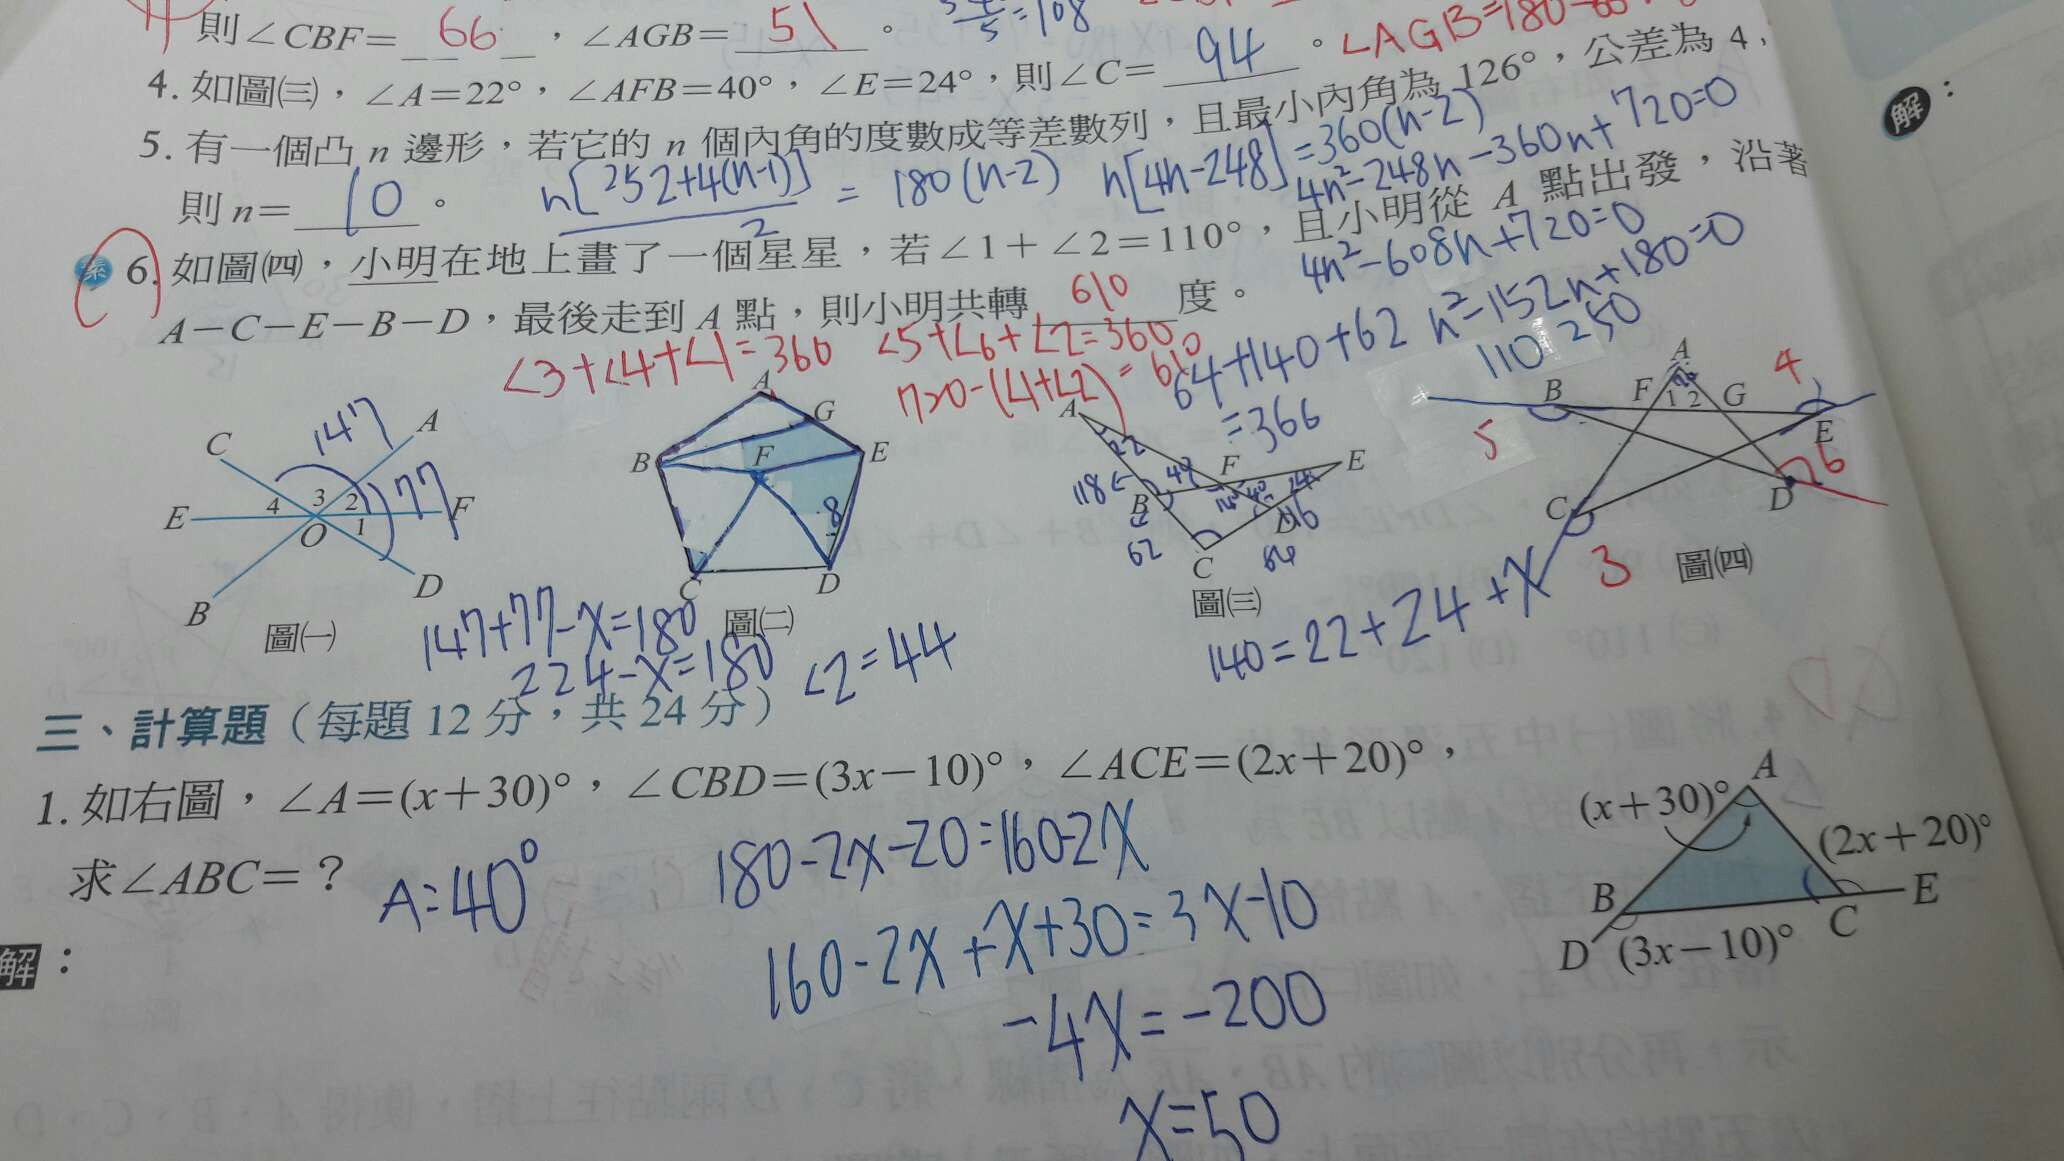 則∠CBF= 66 ，∠AGB= 51 。 =108
∠AGB=180-66
4. 如圖㈢，∠A=22°，∠AFB=40°，∠E=24°，則∠C= 94 。
5. 有一個凸 n 邊形，若它的 n 個內角的度數成等差數列，且最小內角為 126°，公差為 4，
則 n= 10 。
n[252+4(n-1)]/2 = 180(n-2)
n[4n-248]=360(n-2)
4n²-248n-360n+720=0
4n²-608n+720=0
n²-152n+180=0
素 6. 如圖㈣，小明在地上畫了一個星星，若∠1+∠2=110°，且小明從 A 點出發，沿著
A-C-E-B-D，最後走到 A 點，則小明共轉 610 度。
∠3+∠4+∠1=360 ∠5+∠6+∠2=360
720-(∠1+∠2)=610
64+140+62
=366
110 250
C 147 A
E 4 3 2 1 77 F
O
B D
圖㈠
A
G
B F E
8
C D
圖㈡
A
22
118 B 40 F E
24
62 C D 16
圖㈢
A
B F 1 2 G 4
5 E
C D 6
3
圖㈣
147+77-x=180
224-x=180
∠2=44
140=22+24+x
三、計算題（每題 12 分，共 24 分）
1. 如右圖，∠A=(x+30)°，∠CBD=(3x-10)°，∠ACE=(2x+20)°，
求∠ABC=？
A=40°
180-2x-20=160-2x
160-2x+x+30=3x-10
-4x=-200
x=50
A
(x+30)°
(2x+20)°
B C E
D (3x-10)°
解：
解：